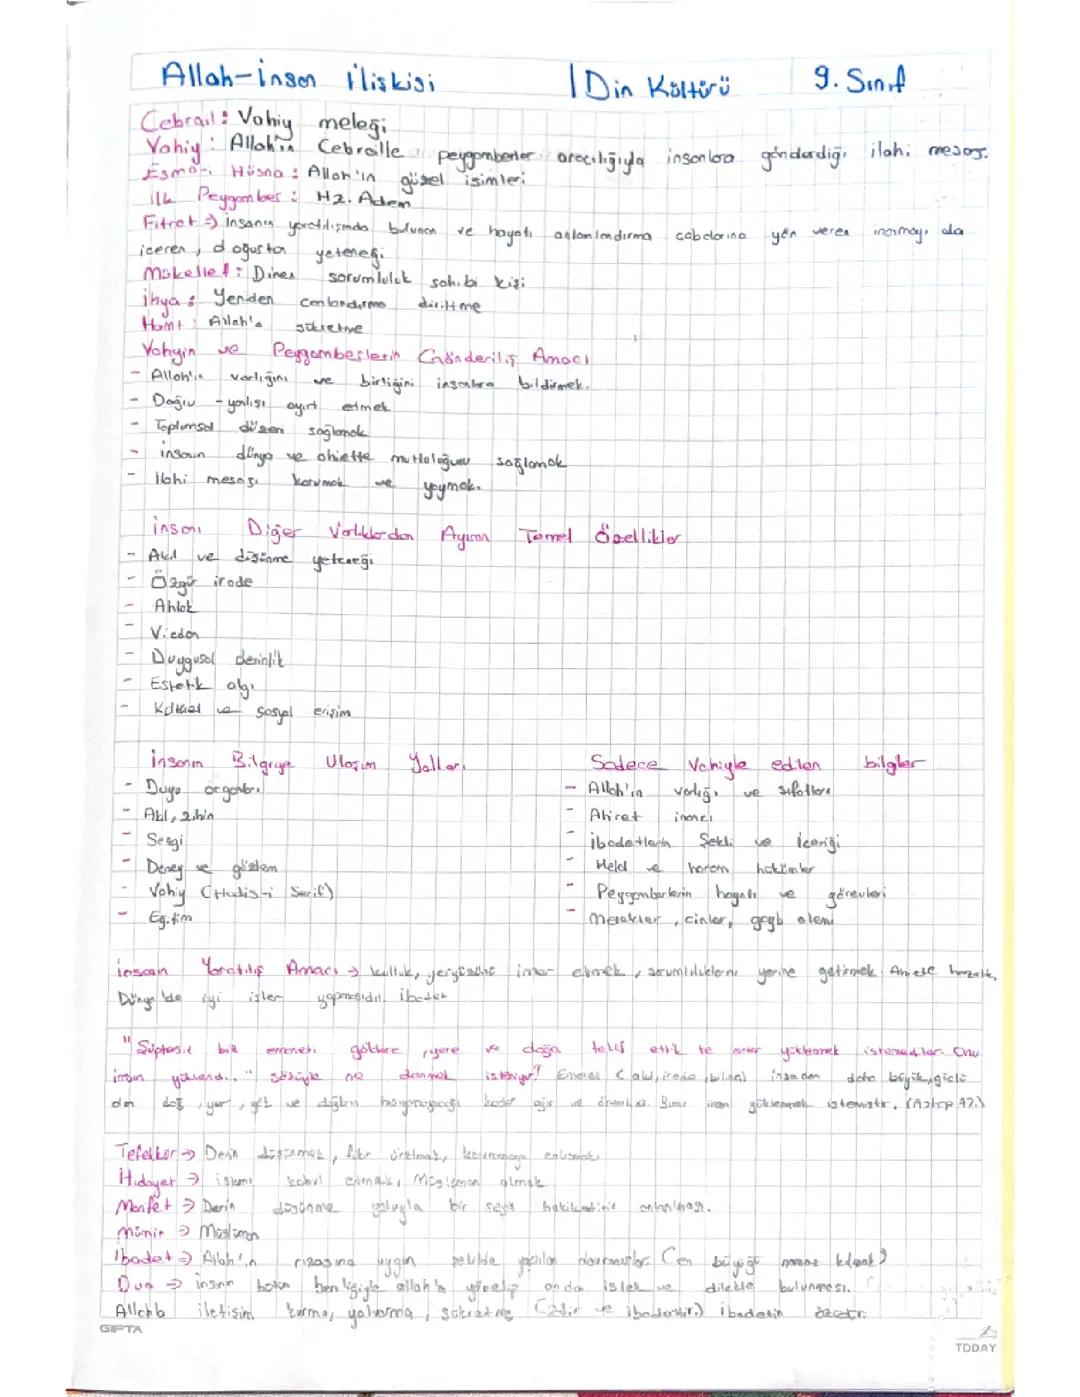 Allah-İnsan İlişkisi | Din Kültürü 9. Sınıf
Cebrail: Vahiy meleği
Vahiy: Allah'ın Cebraille peygamberler aracılığıyla insanlara gönderdiği ilahi mesaj.
Esma-i Hüsna: Allah'ın güzel isimleri
İlk Peygamber: Hz. Adem
Fıtrat → insanın yaratılışında bulunan ve hayatı anlamlandırma çabalarına yön veren inanmayı da
içeren, doğuştan yeteneği
Mükellef: Dinen sorumluluk sahibi kişi
İhya: Yeniden canlandırma diriltme
Hamt: Allah'a şükretme
Vahyin ve Peygamberlerin Gönderiliş Amacı
- Allah'ın varlığını ve birliğini insanlara bildirmek.
- Doğru - yanlışı ayırt etmek
- Toplumsal düzeni sağlamak
- insanın dünya ve ahiette mutluluğunu sağlamak
- ilahi mesajı korumak ve yaymak.
insanı Diğer Varlıklardan Ayıran Temel Özellikler
- Akıl ve düşünme yeteneği
- Özgür irade
- Ahlak
- Vicdan
- Duygusal derinlik
- Estetik algı
- Kültürel ve sosyal erişim
insanın Bilgiye Ulaşım Yolları
- Duyu organları
- Akıl, zihin
- Sezgi
- Deney ve gözlem
- Vahiy (Hadis-i Şerif)
- Eğitim
Sadece Vahiyle edilen bilgiler
- Allah'ın varlığı ve sıfatları
- Ahiret inancı
- ibadetlerin Şekli ve İçeriği
- Helal ve haram hükümler
- Peygamberlerin hayatı ve görevleri
- Melekler, cinler, gayb alemi
insanın Yaratılış Amacı → kulluk, yeryüzünü imar etmek, sorumluluklarını yerine getirmek Ahirete hazırlık,
Dünya'da iyi işler yapmalıdır. ibadet
"Şüphesiz biz emaneti göklere, yere ve dağa teklif ettik te onlar yüklenmek istemediler. Onu
insan yüklendi..." sözüyle ne denmek isteniyor? Emanet (akıl, irade, bilinç) insandan daha büyük, güçlü
olan dağ, yer, gök ve kadar ağır ve önemlidir. Bunu yüklenmek istemiştir. (Ahzap 72.)
Tefekkür → Derin düşünmek, fikir üretmek, kavramaya çalışmak
Hidayet → islamı kabul etmek, Müslüman olmak
Marifet → Derin düşünme yoluyla bir şeyin hakikatinin anlaşılması.
Mümin → Müslüman
İbadet → Allah'ın rızasına uygun şekilde yapılan davranışlar. (en büyüğü namaz kılmak)
Dua → insanın bütün benliğiyle allah'a yönelip ondan istek ve dilekte bulunması.
Allahla iletişim kurma, yalvarma, şükretme (zikir ve ibadettir.) ibadetin özüdür.
GIPTA
TODAY